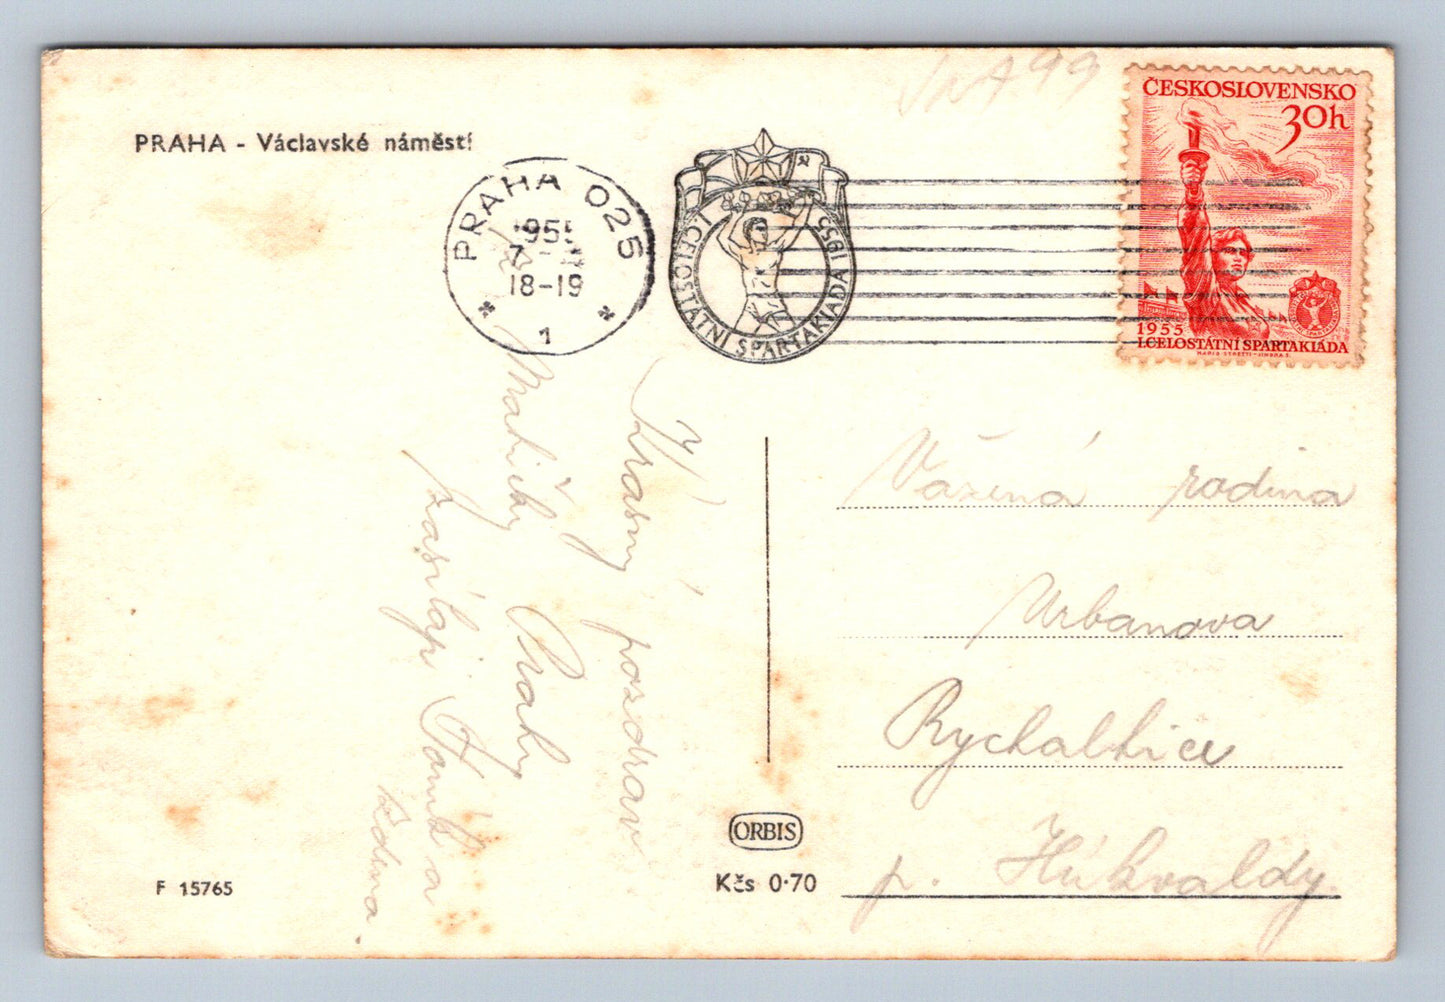 PRAHA - Václavské náměstí
PRAHA 025
1955
7
18-19
1
I. CELOSTÁTNÍ SPARTAKIÁDA 1955
ČESKOSLOVENSKO
30h
1955
I.CELOSTÁTNÍ SPARTAKIÁDA
Krásný pozdrav
z Matičky Prahy
zasílají
a Zdena
Vážená rodina
Urbanova
Rychaltice
p. Húkvaldy.
ORBIS
Kčs 0·70
F 15765